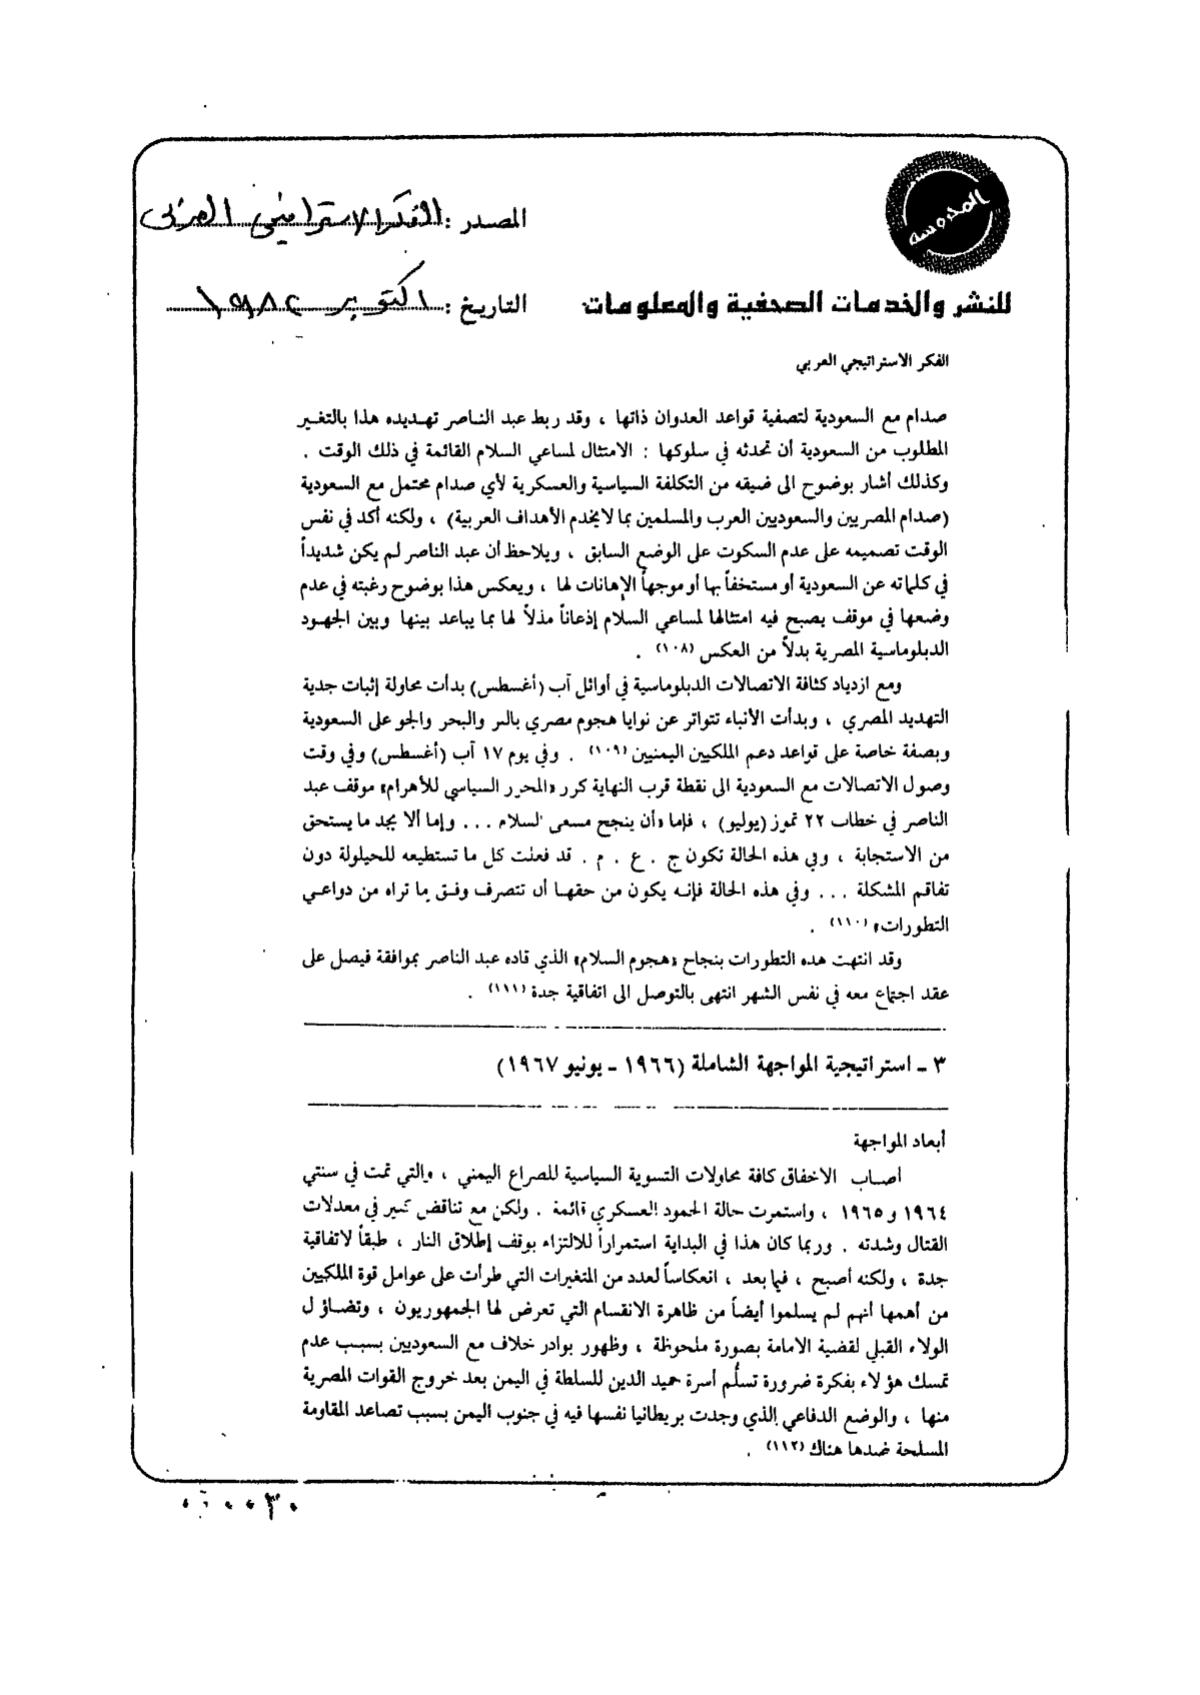 المحروسه
المصدر : الفكر الاستراتيجي العربي
للنشر والخدمات الصحفية والمعلومات
التاريخ : اكتوبر ١٩٨٢
الفكر الاستراتيجي العربي
صدام مع السعودية لتصفية قواعد العدوان ذاتها ، وقد ربط عبد الناصر تهديده هذا بالتغير
المطلوب من السعودية أن تحدثه في سلوكها : الامتثال لمساعي السلام القائمة في ذلك الوقت .
وكذلك أشار بوضوح الى ضيقه من التكلفة السياسية والعسكرية لأي صدام محتمل مع السعودية
(صدام المصريين والسعوديين العرب والمسلمين بما لايخدم الأهداف العربية) ، ولكنه أكد في نفس
الوقت تصميمه على عدم السكوت على الوضع السابق ، ويلاحظ أن عبد الناصر لم يكن شديداً
في كلماته عن السعودية أو مستخفاً بها أو موجهاً الإهانات لها ، ويعكس هذا بوضوح رغبته في عدم
وضعها في موقف يصبح فيه امتثالها لمساعي السلام إذعاناً مذلاً لها بما يباعد بينها وبين الجهود
الدبلوماسية المصرية بدلاً من العكس (١٠٨) .
ومع ازدياد كثافة الاتصالات الدبلوماسية في أوائل آب (أغسطس) بدأت محاولة إثبات جدية
التهديد المصري ، وبدأت الأنباء تتواتر عن نوايا هجوم مصري بالبر والبحر والجو على السعودية
وبصفة خاصة على قواعد دعم الملكيين اليمنيين (١٠٩) . وفي يوم ١٧ آب (أغسطس) وفي وقت
وصول الاتصالات مع السعودية الى نقطة قرب النهاية كرر «المحرر السياسي للأهرام» موقف عبد
الناصر في خطاب ٢٢ تموز (يوليو) ، فإما «أن ينجح مسعى السلام ... وإما ألا يجد ما يستحق
من الاستجابة ، وفي هذه الحالة تكون ج . ع . م . قد فعلت كل ما تستطيعه للحيلولة دون
تفاقم المشكلة ... وفي هذه الحالة فإنه يكون من حقها أن تتصرف وفق ما تراه من دواعي
التطورات» (١١٠) .
وقد انتهت هذه التطورات بنجاح «هجوم السلام» الذي قاده عبد الناصر بموافقة فيصل على
عقد اجتماع معه في نفس الشهر انتهى بالتوصل الى اتفاقية جدة (١١١) .
٣ - استراتيجية المواجهة الشاملة (١٩٦٦ - يونيو ١٩٦٧)
أبعاد المواجهة
أصاب الاخفاق كافة محاولات التسوية السياسية للصراع اليمني ، والتي تمت في سنتي
١٩٦٤ و ١٩٦٥ ، واستمرت حالة الجمود العسكري قائمة . ولكن مع تناقض كبير في معدلات
القتال وشدته . وربما كان هذا في البداية استمراراً للالتزام بوقف إطلاق النار ، طبقاً لاتفاقية
جدة ، ولكنه أصبح ، فيما بعد ، انعكاساً لعدد من المتغيرات التي طرأت على عوامل قوة الملكيين
من أهمها أنهم لم يسلموا أيضاً من ظاهرة الانقسام التي تعرض لها الجمهوريون ، وتضاؤل
الولاء القبلي لقضية الامامة بصورة ملحوظة ، وظهور بوادر خلاف مع السعوديين بسبب عدم
تمسك هؤلاء بفكرة ضرورة تسلُّم أسرة حميد الدين للسلطة في اليمن بعد خروج القوات المصرية
منها ، والوضع الدفاعي الذي وجدت بريطانيا نفسها فيه في جنوب اليمن بسبب تصاعد المقاومة
المسلحة ضدها هناك (١١٢) .